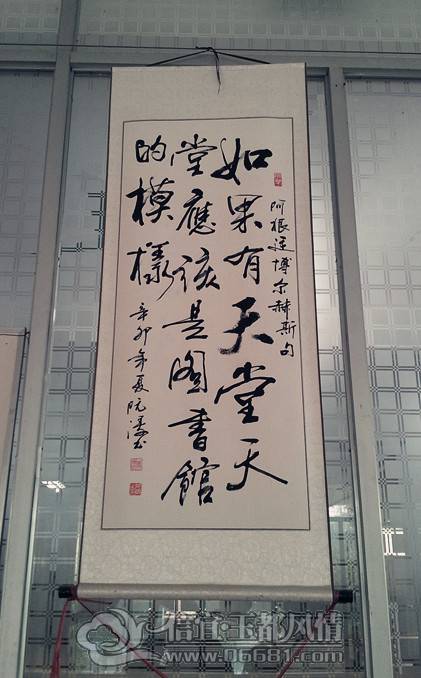 阿根廷博尔赫斯句
如果有天堂天
堂應該是圖書館
的模樣
辛卯年夏阮书
信宜·玉都风情
www.06681.com